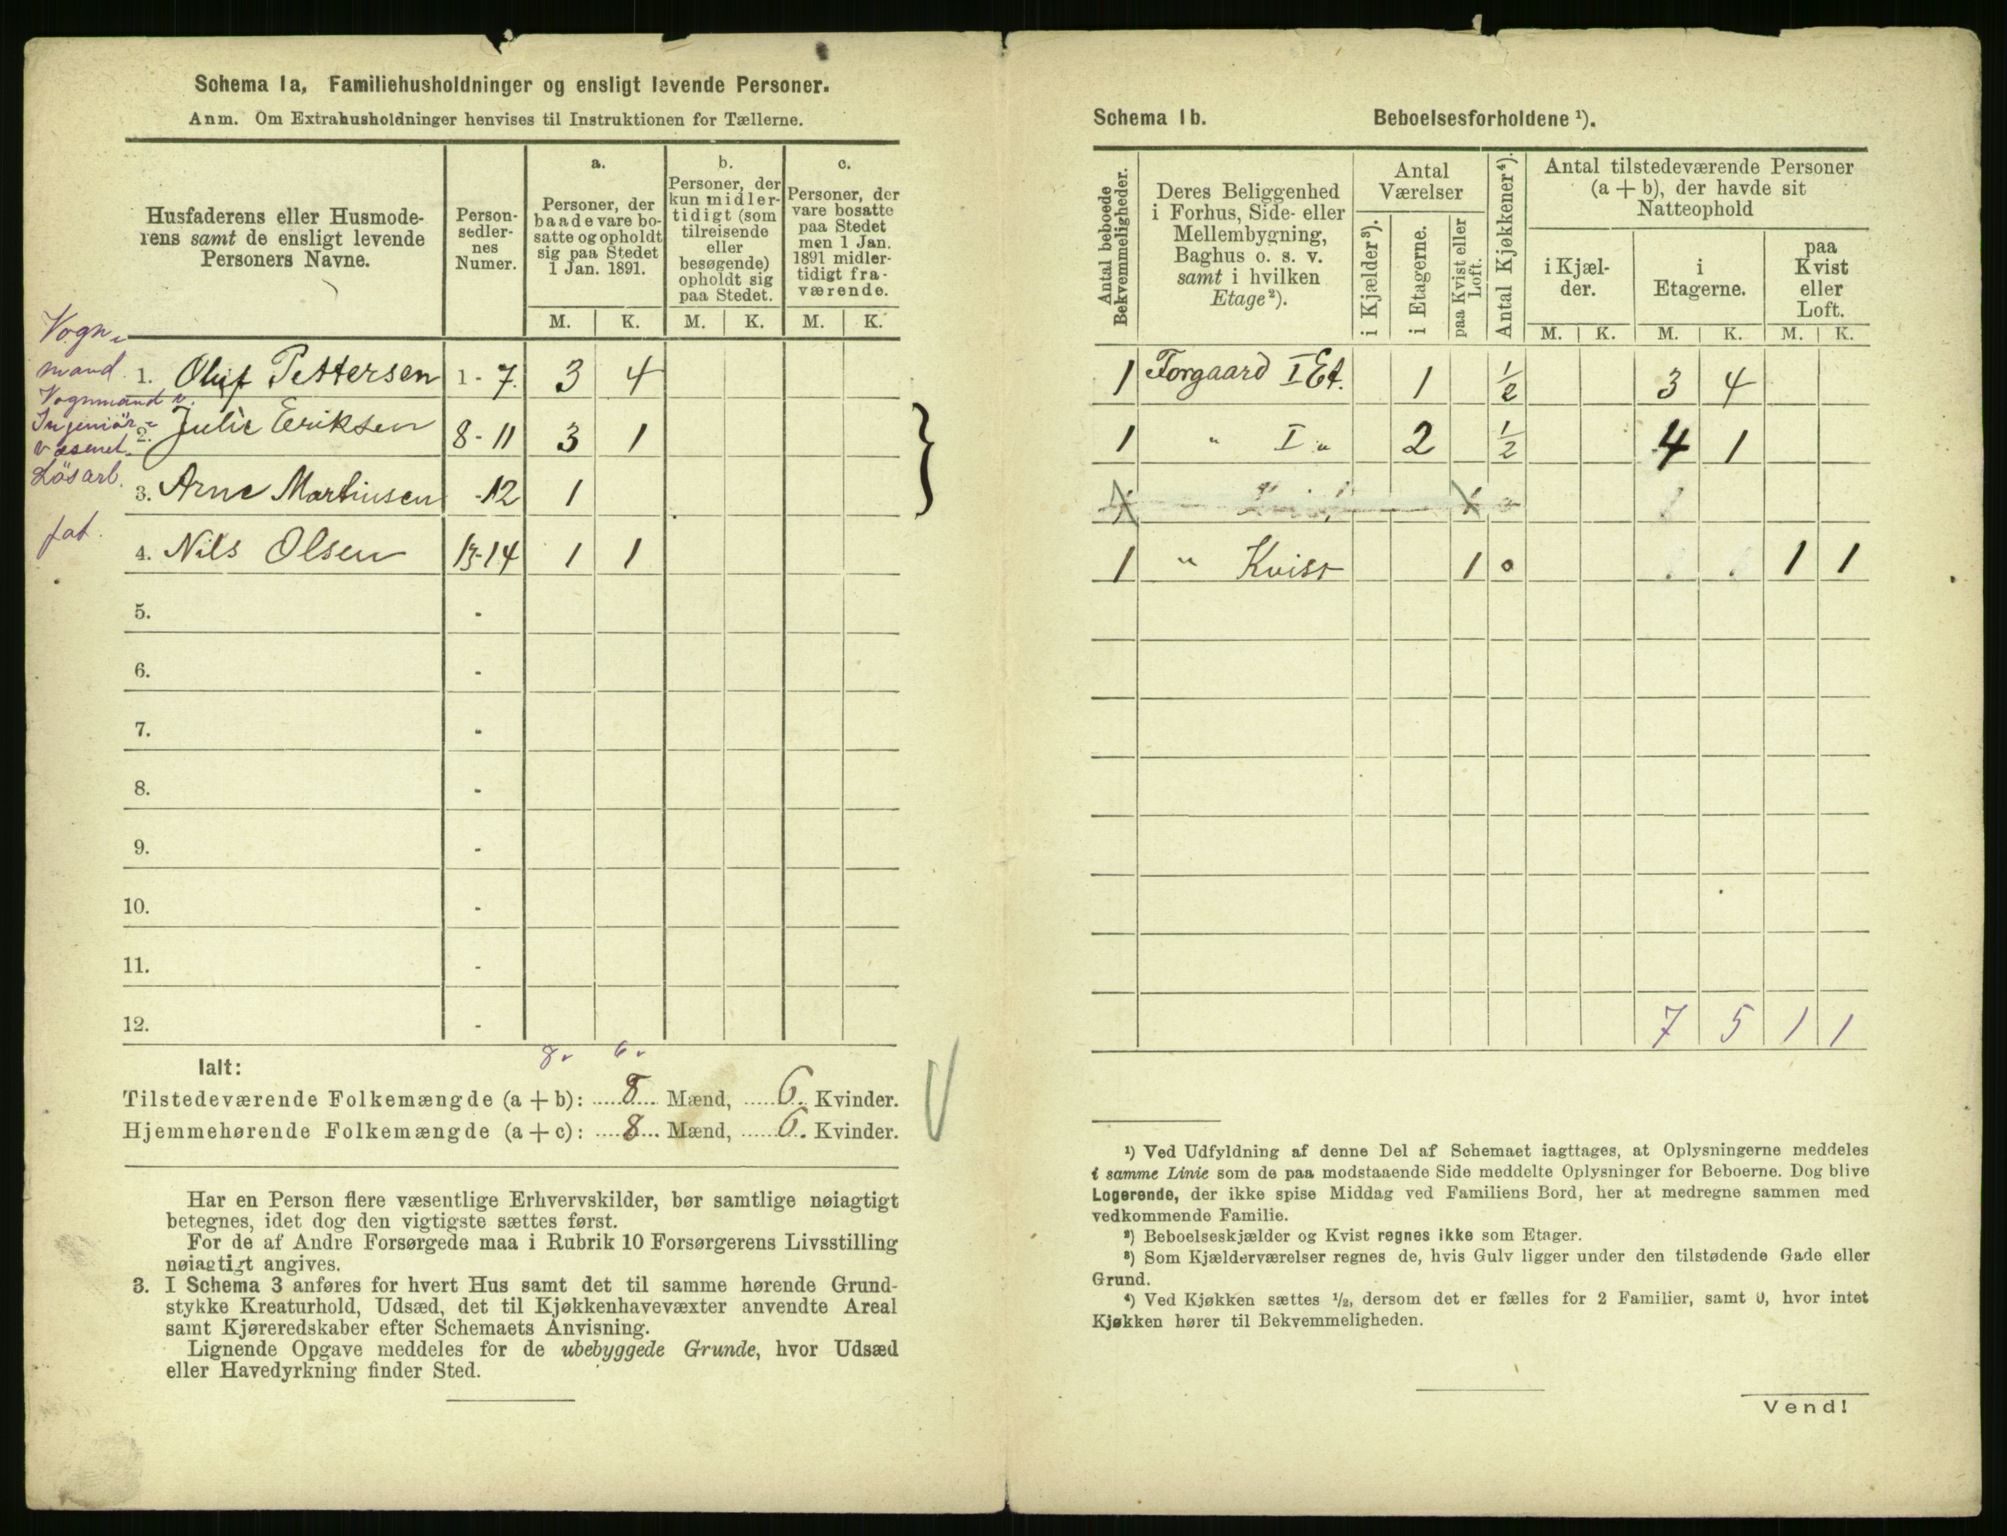 Schema 1a, Familiehusholdninger og ensligt levende Personer.
Anm. Om Extrahusholdninger henvises til Instruktionen for Tællerne.
Husfaderens eller Husmode-
rens samt de ensligt levende
Personers Navne.
Person-
sedler-
nes
Numer.
a.
Personer, der
baade vare bo-
satte og opholdt
sig paa Stedet
1 Jan. 1891.
b.
Personer, der
kun midler-
tidigt (som
tilreisende
eller
besøgende)
opholdt sig
paa Stedet.
c.
Personer, der
vare bosatte
paa Stedet
men 1 Jan.
1891 midler-
tidigt fra-
værende.
M. K. M. K. M. K.
Vogn-
mand
1. Oluf Pettersen 1-7 3 4
Vognmand v.
Ingeniör-
væsenet.
2. Julie Eriksen 8-11 3 1
Lösarb.
3. Arne Martinsen -12 1
fat.
4. Nils Olsen 13-14 1 1
5. -
6. -
7. -
8. -
9. -
10. -
11. -
12. -
8. 6.
Ialt:
Tilstedeværende Folkemængde (a + b): 8 Mænd, 6. Kvinder.
Hjemmehørende Folkemængde (a + c): 8 Mænd, 6. Kvinder.
Har en Person flere væsentlige Erhvervskilder, bør samtlige nøiagtigt
betegnes, idet dog den vigtigste sættes først.
For de af Andre Forsørgede maa i Rubrik 10 Forsørgerens Livsstilling
nøiagtigt angives.
3. I Schema 3 anføres for hvert Hus samt det til samme hørende Grund-
stykke Kreaturhold, Udsæd, det til Kjøkkenhavevæxter anvendte Areal
samt Kjøreredskaber efter Schemaets Anvisning.
Lignende Opgave meddeles for de ubebyggede Grunde, hvor Udsæd
eller Havedyrkning finder Sted.
Schema 1b. Beboelsesforholdene ¹).
Antal beboede
Bekvemmeligheder.
Deres Beliggenhed
i Forhus, Side- eller
Mellembygning,
Baghus o. s. v.
samt i hvilken
Etage ²).
Antal
Værelser
i Kjælder ³).
i Etagerne.
paa Kvist eller
Loft.
Antal Kjøkkener ⁴).
Antal tilstedeværende Personer
(a + b), der havde sit
Natteophold
i Kjæl-
der.
i
Etagerne.
paa
Kvist
eller
Loft.
M. K. M. K. M. K.
1 Forgaard I Et. 1 ½ 3 4
1 " I " 2 ½ 4 1
1 " Kvist 1 0 1 1
7 5 1 1
¹) Ved Udfyldning af denne Del af Schemaet iagttages, at Oplysningerne meddeles
i samme Linie som de paa modstaaende Side meddelte Oplysninger for Beboerne. Dog blive
Logerende, der ikke spise Middag ved Familiens Bord, her at medregne sammen med
vedkommende Familie.
²) Beboelseskjælder og Kvist regnes ikke som Etager.
³) Som Kjælderværelser regnes de, hvis Gulv ligger under den tilstødende Gade eller
Grund.
⁴) Ved Kjøkken sættes ½, dersom det er fælles for 2 Familier, samt 0, hvor intet
Kjøkken hører til Bekvemmeligheden.
Vend!